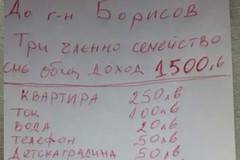 До г-н Борисов
Три членно семейство
смь общ доход 1500лв
КВАРТИРА 250лв
ТОК 100лв
ВОДА 20лв
ТЕЛЕФОН 50лв
ДЕТСКАГРАДИНА 50лв